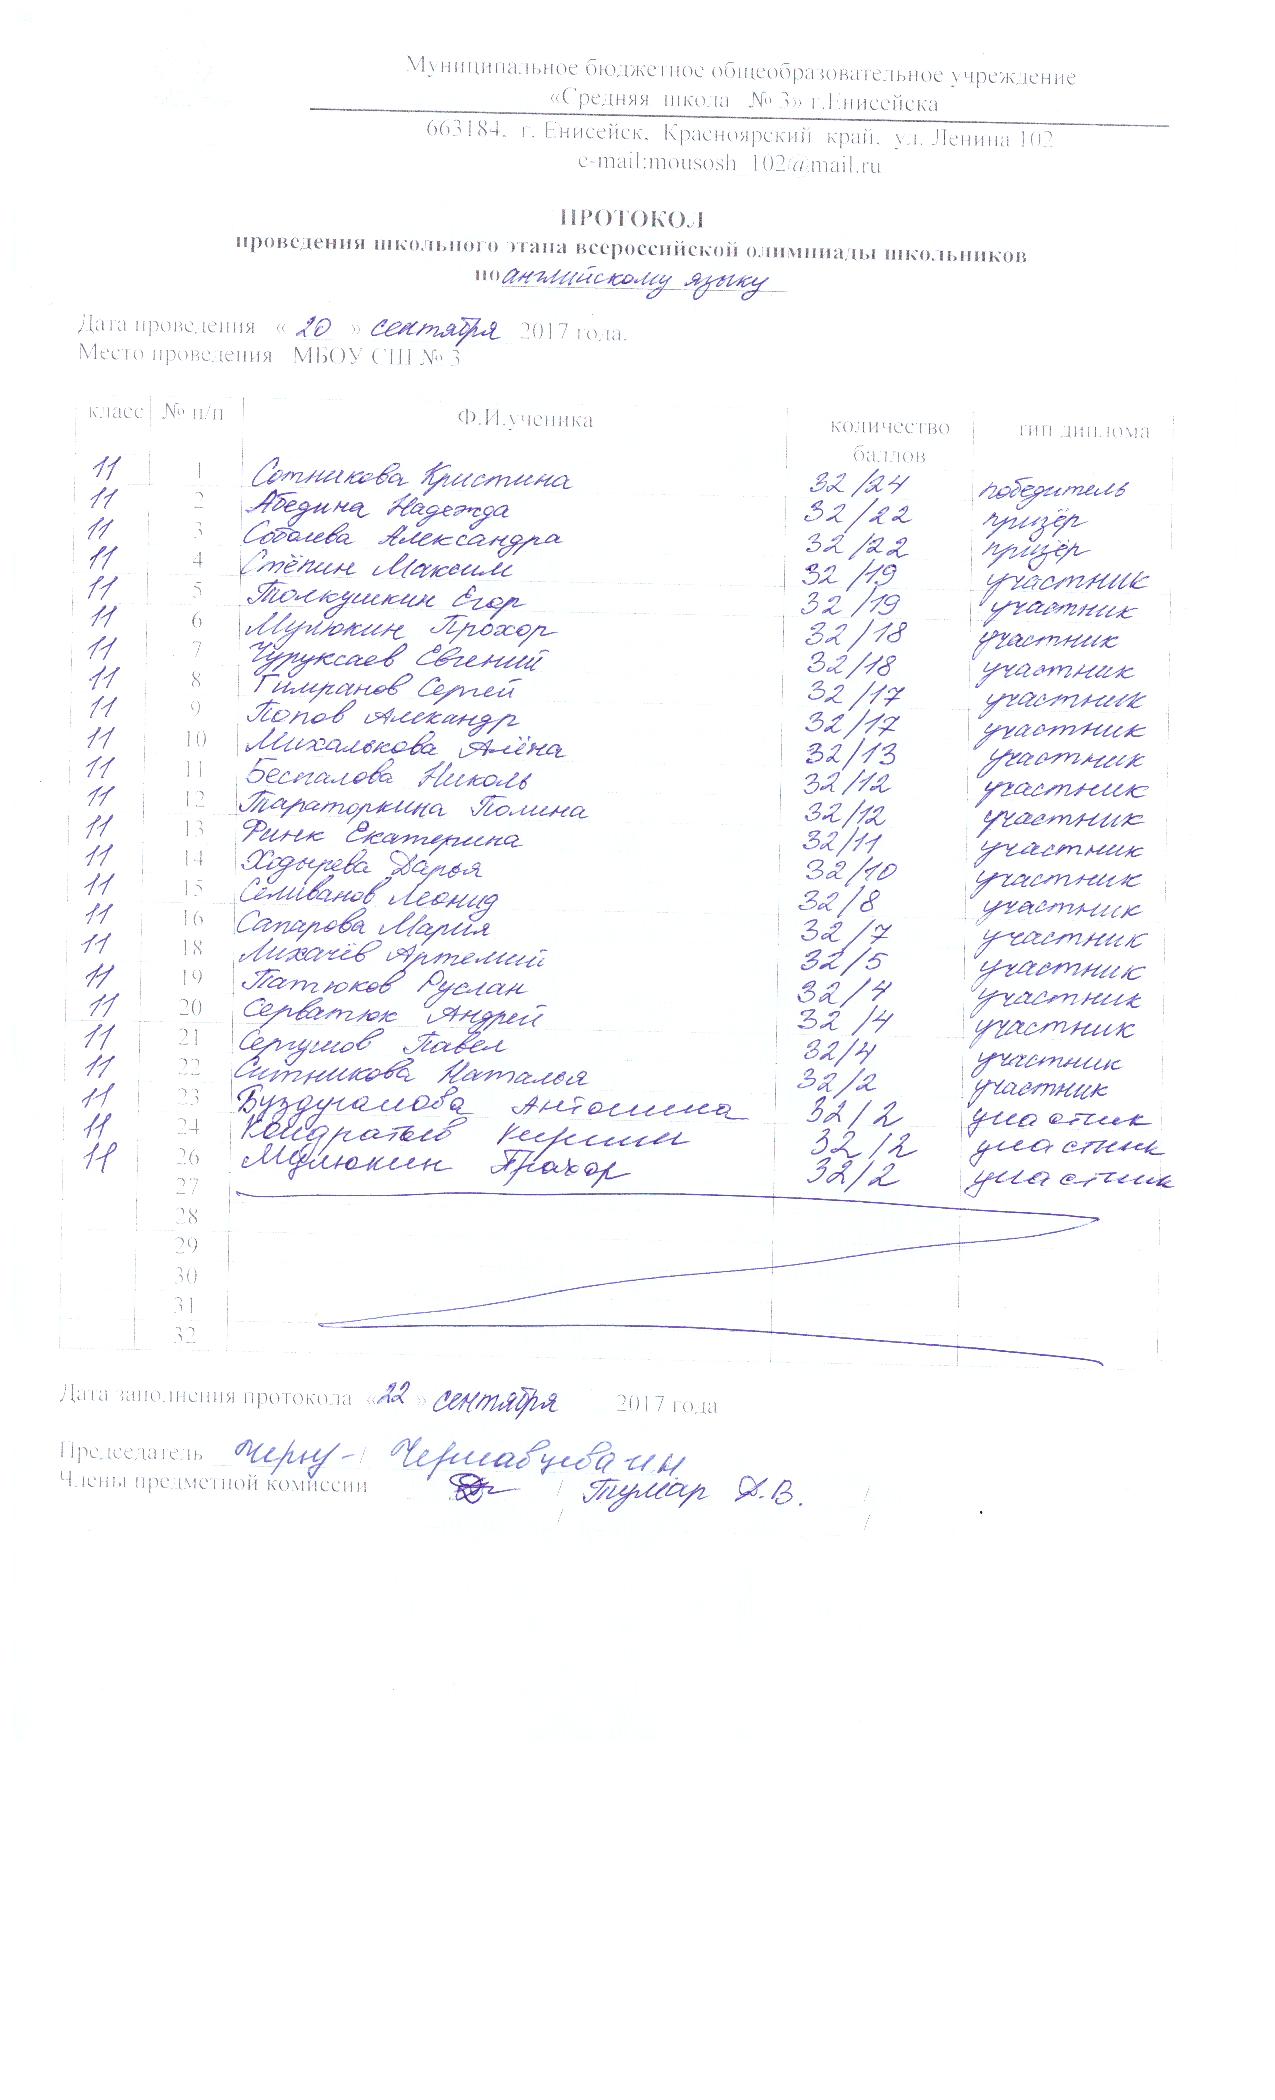 Муниципальное бюджетное общеобразовательное учреждение
«Средняя школа № 3» г.Енисейска
663184, г. Енисейск, Красноярский край, ул. Ленина 102
e-mail:mousosh_102@mail.ru
ПРОТОКОЛ
проведения школьного этапа всероссийской олимпиады школьников
по английскому языку
Дата проведения « 20 » сентября 2017 года.
Место проведения МБОУ СШ № 3
класс № п/п Ф.И.ученика количество баллов тип диплома
11 1 Сотникова Кристина 32/24 победитель
11 2 Абедина Надежда 32/22 призёр
11 3 Соболева Александра 32/22 призёр
11 4 Стёпин Максим 32/19 участник
11 5 Толкушкин Егор 32/19 участник
11 6 Мулюкин Прохор 32/18 участник
11 7 Чуруксаев Евгений 32/18 участник
11 8 Гимранов Сергей 32/17 участник
11 9 Попов Алекандр 32/17 участник
11 10 Михалькова Алёна 32/13 участник
11 11 Беспалова Николь 32/12 участник
11 12 Тараторкина Полина 32/12 участник
11 13 Финк Екатерина 32/11 участник
11 14 Ходырева Дарья 32/10 участник
11 15 Селиванов Леонид 32/8 участник
11 16 Сапарова Мария 32/7 участник
11 18 Лихачёв Артемий 32/5 участник
11 19 Патюков Руслан 32/4 участник
11 20 Серватюк Андрей 32/4 участник
11 21 Сергушов Павел 32/4 участник
11 22 Ситникова Наталья 32/2 участник
11 23 Антонина 32/2 участик
11 24 Кондратьев Кирилл 32/2 участник
11 26 Мулюкин Прохор 32/2 участник
27
28
29
30
31
32
Дата заполнения протокола «22» сентября 2017 года
Председатель
Члены предметной комиссии / Тумар Д.В. /
/ /